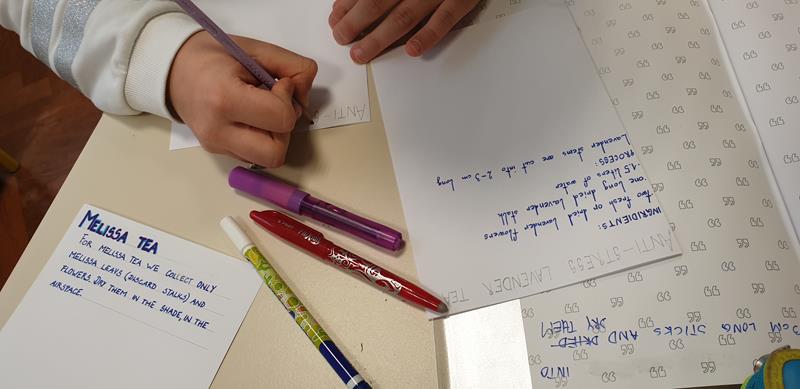 MELISSA TEA
FOR MELISSA TEA WE COLLECT ONLY
MELISSA LEAVS (DISCARD STALKS) AND
FLOWERS. DRY THEM IN THE SHADE, IN THE
AIRSPACE.
ANTI-
ANTI-STRESS LAVENDER TEA
INGRIDIENTS:
two fresh or dried lavender flowers
one long dried lavender stalk
1.5 liters of water
PROCESS:
Lavender stems are cut into 2-3 cm long
INTO
3CM LONG STICKS AND DRIED DRY THEM